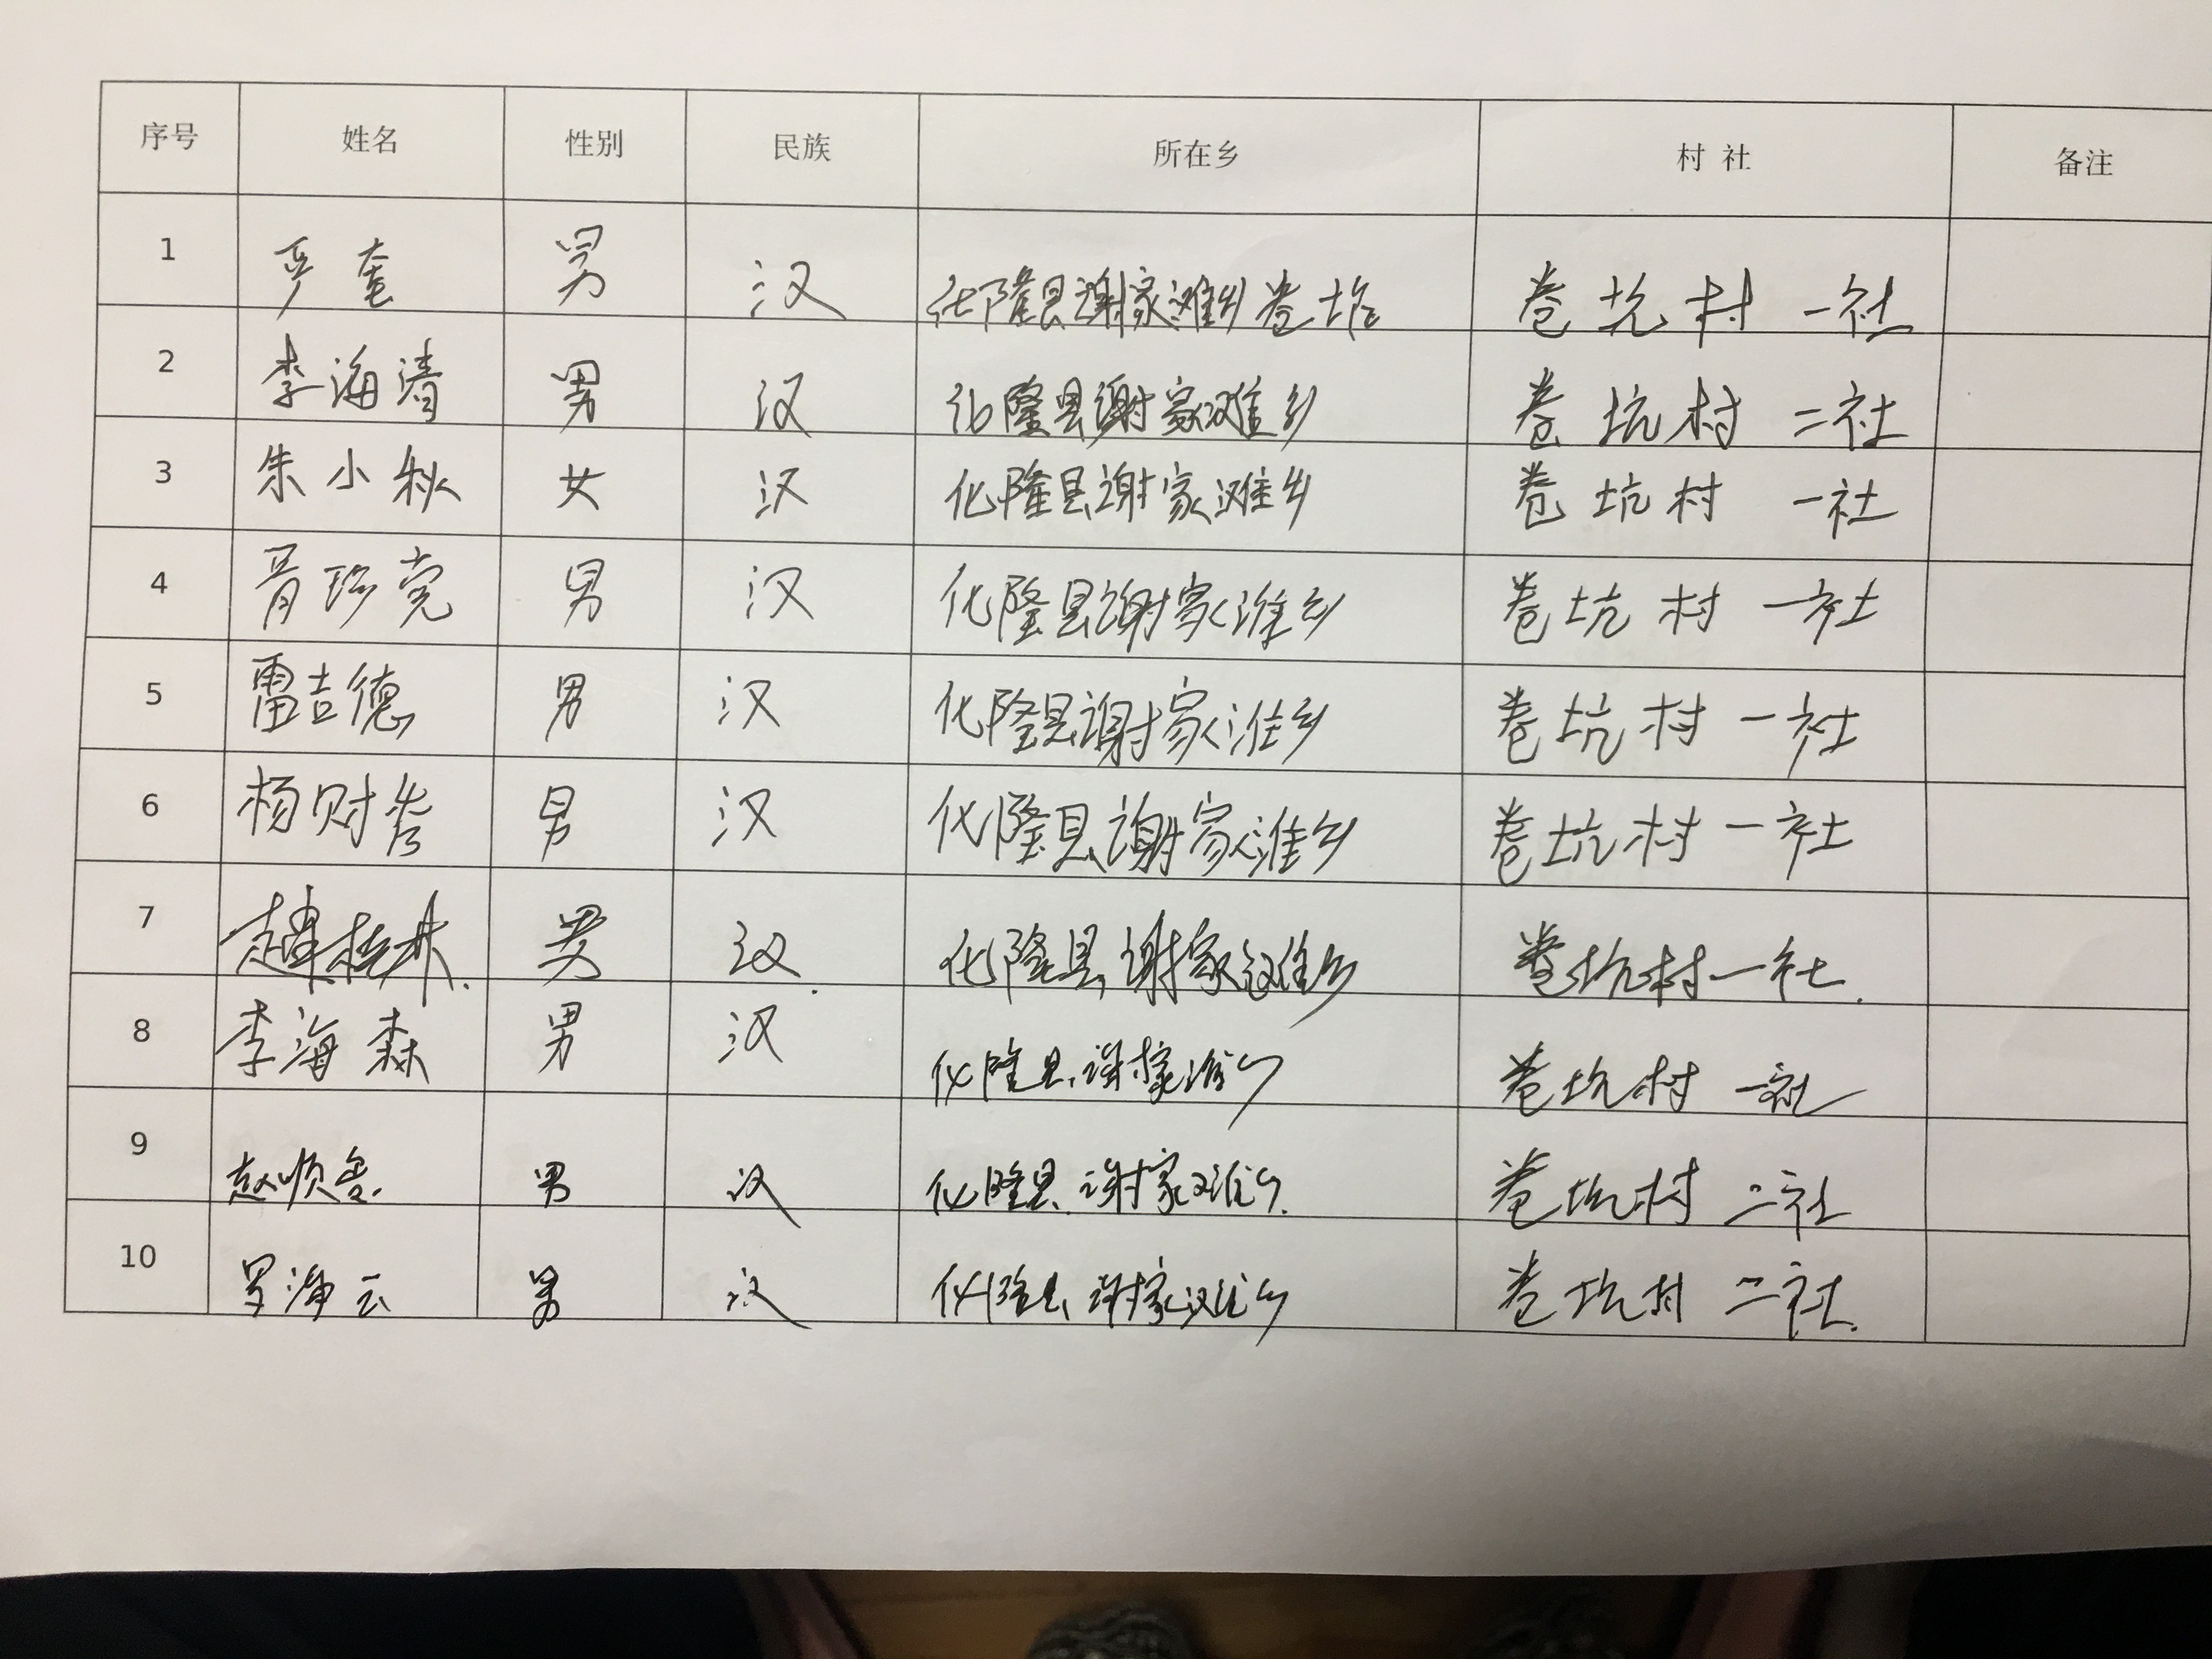 序号 姓名 性别 民族 所在乡 村 社 备注
1 严奎 男 汉 化隆县谢家滩乡卷 卷坑村 一社
2 李海清 男 汉 化隆县谢家滩乡 卷坑村 二社
3 朱小秋 女 汉 化隆县谢家滩乡 卷坑村 一社
4 男 汉 化隆县谢家滩乡 卷坑村 一社
5 雷吉德 男 汉 化隆县谢家滩乡 卷坑村 一社
6 杨财 男 汉 化隆县谢家滩乡 卷坑村 一社
7 男 汉 化隆县谢家滩乡 卷坑村一社
8 李海森 男 汉 化隆县谢家滩乡 卷坑村 一社
9 赵顺 男 汉 化隆县谢家滩乡 卷坑村 二社
10 罗海云 男 汉 化隆县谢家滩乡 卷坑村 二社